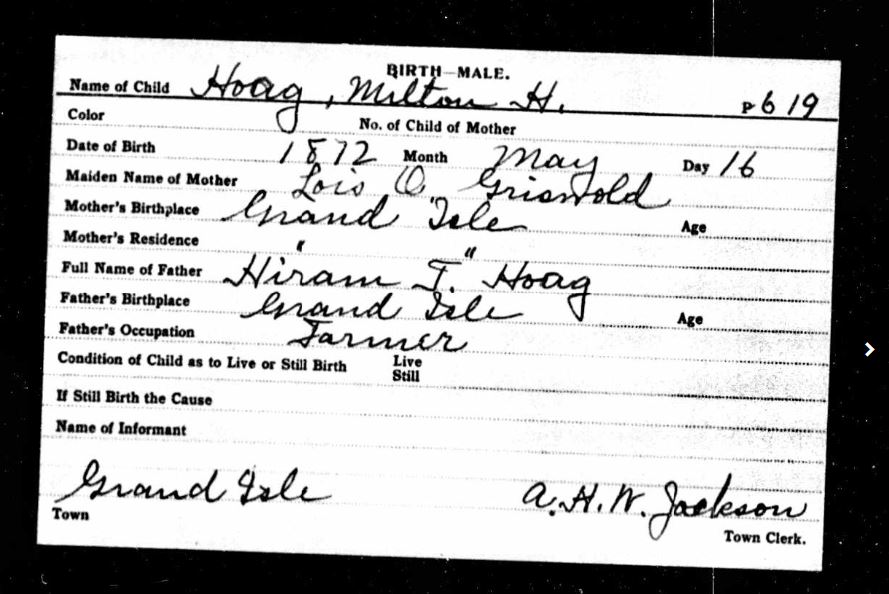 BIRTH—MALE.
Name of Child Hoag, Milton H. P 619
Color No. of Child of Mother
Date of Birth 1872 Month May Day 16
Maiden Name of Mother Lois O Griswold
Mother's Birthplace Grand Isle Age
Mother's Residence " "
Full Name of Father Hiram T. Hoag
Father's Birthplace Grand Isle Age
Father's Occupation Farmer
Condition of Child as to Live or Still Birth Live
Still
If Still Birth the Cause
Name of Informant
Grand Isle A. H. W. Jackson
Town Town Clerk.